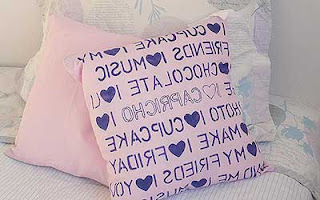 CUPCAKE I ♥ MY
FRIENDS I ♥ MUSIC
♥ CHOCOLATE I ♥ U
I ♥ CAPRICHO I
I ♥ CUPCAKE
MAKE I ♥ FRIDAY
♥ MY FRIENDS ♥ YOU
AND ME I ♥ MUSIC